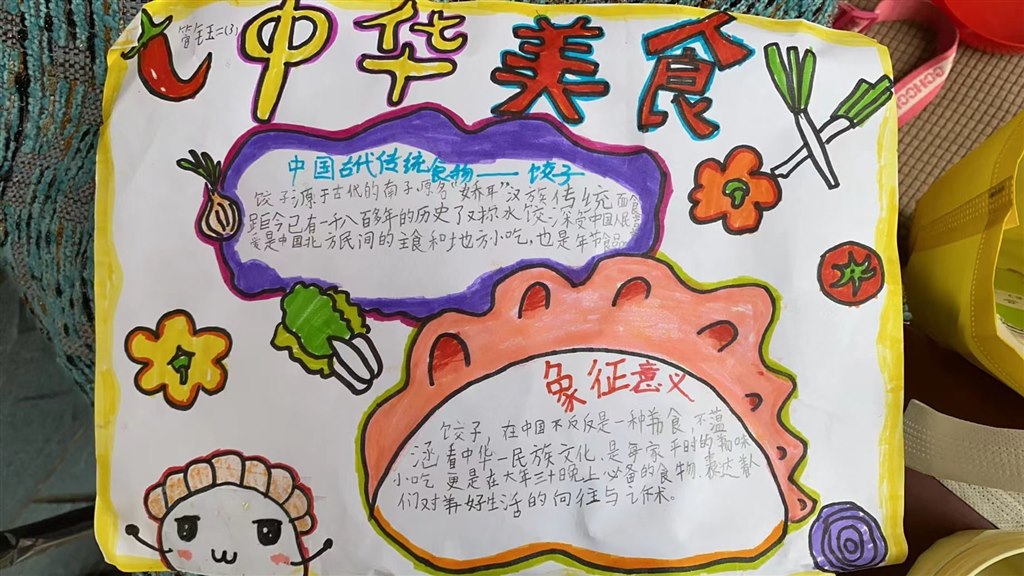 中华美食
管钰玉二(3)
中国古代传统食物——饺子
饺子源于古代的南子原名"娇耳"汉族传统面食
距今已有一千八百多年的历史了又称水饺深受中国人民
爱是中国北方民间的主食和地方小吃,也是年节食品
象征意义
饺子 在中国不仅仅是一种美食 不蕴
涵着中华民族文化,是每家平时的美味
小吃 更是在大年三十晚上必备的食物,表达人
们对美好生活的向往与乞求。
SCHOOL